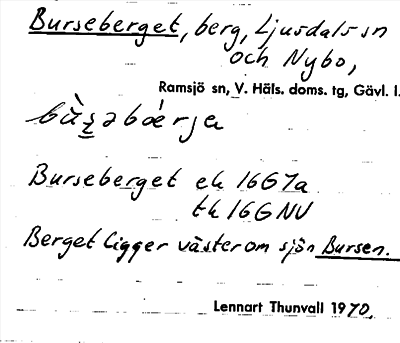 Burseberget, berg, Ljusdals sn
och Nybo,
Ramsjö sn, V. Häls. doms. tg, Gävl. l.
Burseberget ek 16G7a
tk 16G NV
Berget ligger väster om sjön Bursen.
Lennart Thunvall 1970.